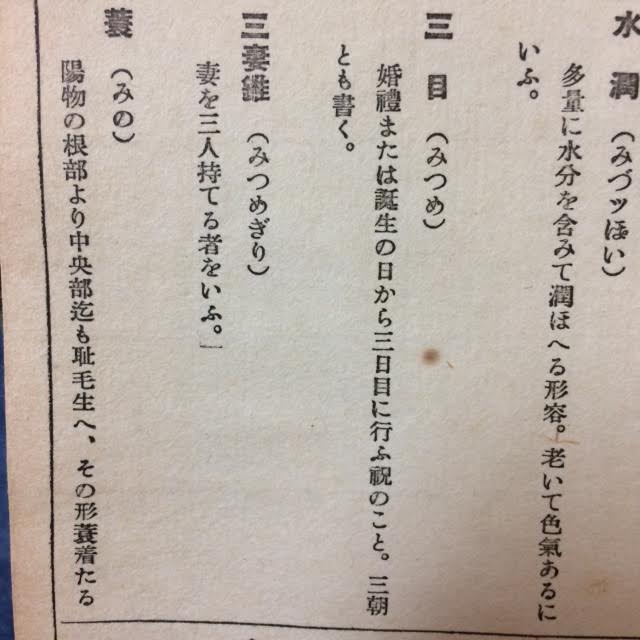 水潤（みづッぽい）
多量に水分を含みて潤ほへる形容。老いて色氣あるに
いふ。
三目（みつめ）
婚禮または誕生の日から三日目に行ふ祝のこと。三朝
とも書く。
三妻錐（みつめぎり）
妻を三人持てる者をいふ。
蓑（みの）
陽物の根部より中央部迄も耻毛生へ、その形蓑着たる